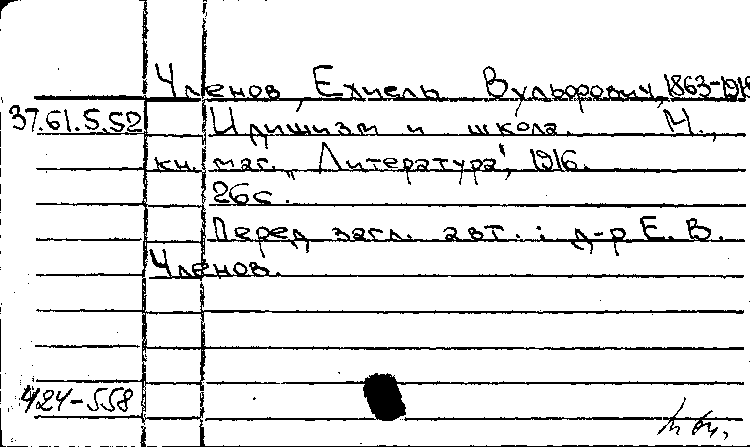 Членов, Ехиель Вульфович, 1863-1918
37.61.5.52 Идишизм и школа. М.,
кн. маг. „Литература", 1916.
26с.
Перед загл. авт.: д-р Е. В.
Членов.
424-558